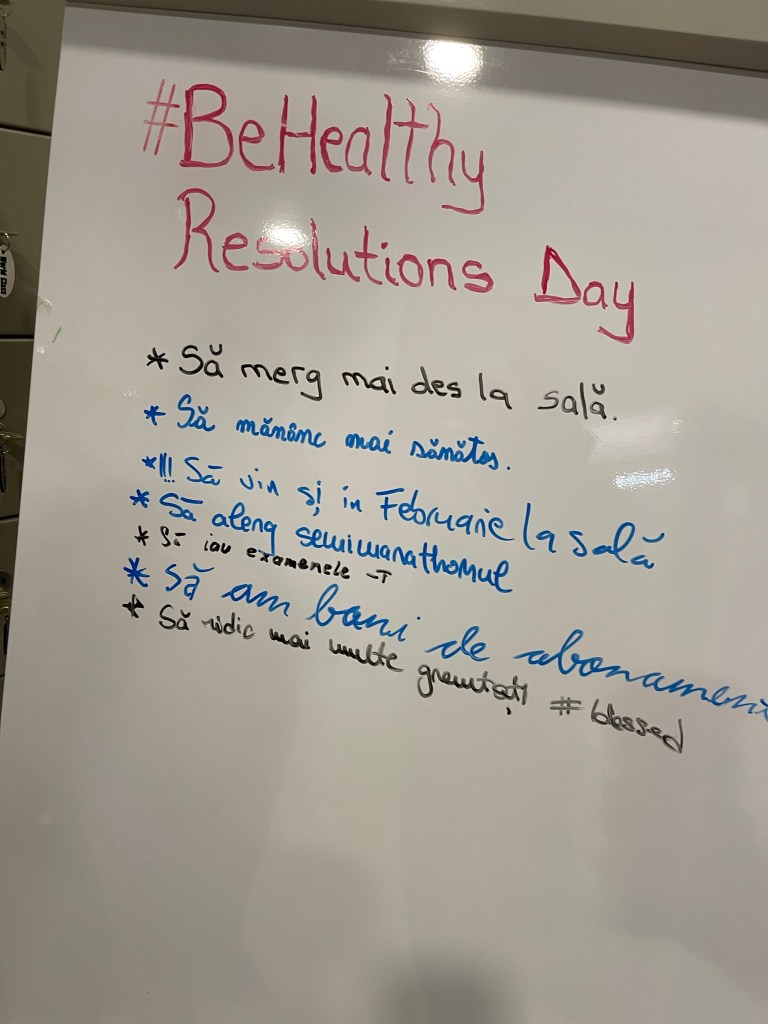 #BeHealthy
Resolutions Day
* Să merg mai des la sală.
* Să mănânc mai sănătos.
*!!! Să vin și în Februarie la sală
* Să alerg semimarathonul
* Să iau examenele -T
* Să am bani de abonament
* Să ridic mai multe greutăți #blessed
World Class